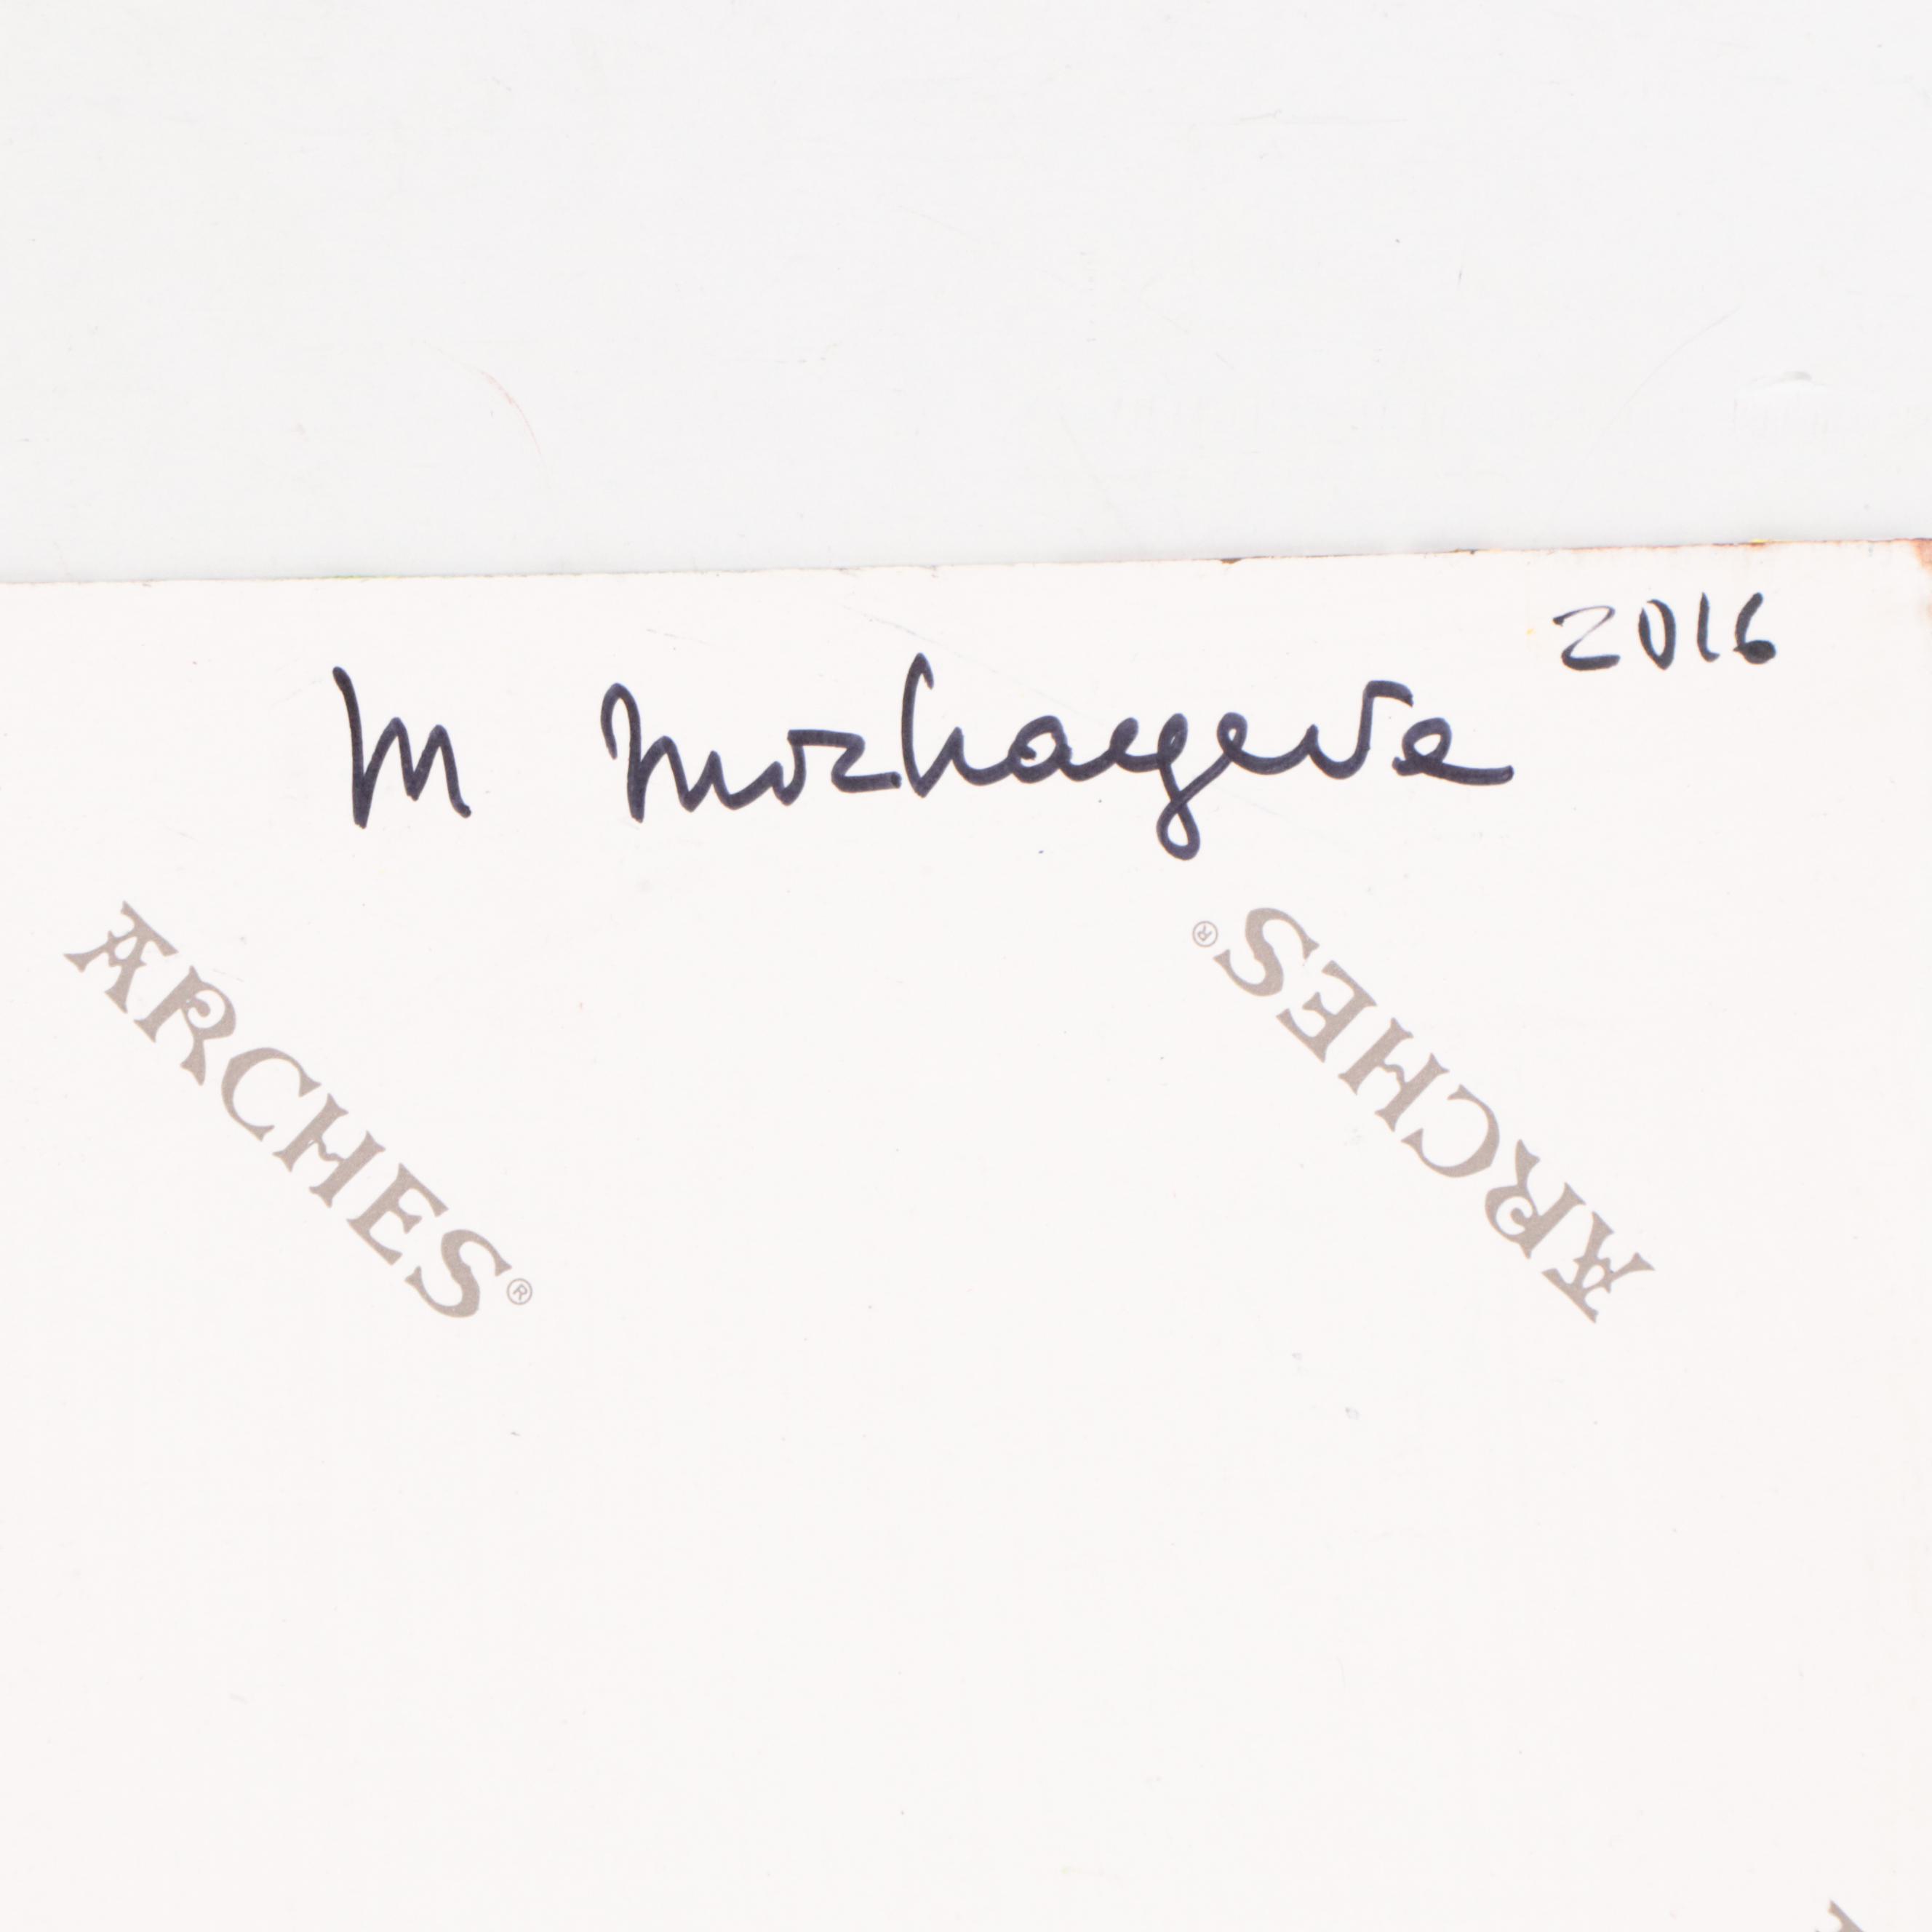 2016
M Mozhayeva
ARCHES®
ARCHES®